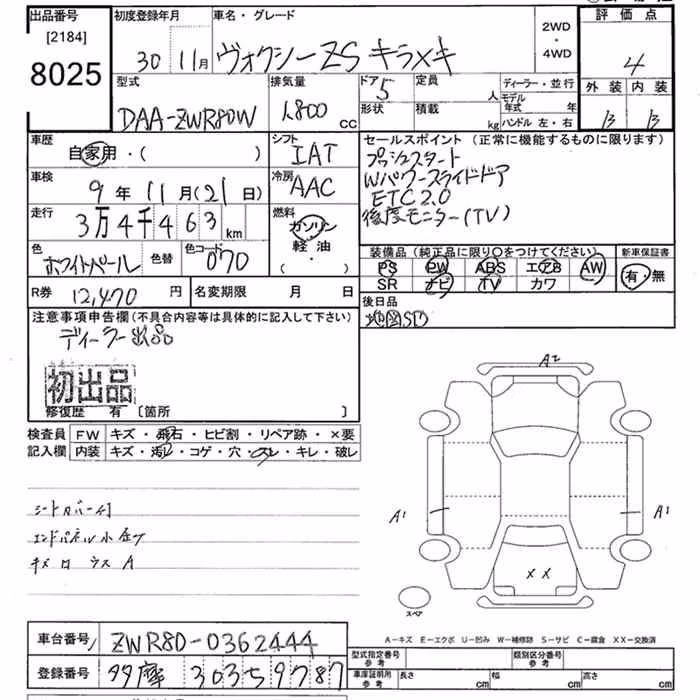 出品番号 初度登録年月 車名・グレード 2WD・4WD 評価点
[2184]
8025 30 11月 ヴォクシーZS キラメキ 4
型式 排気量 ドア 5 定員 人 ディーラー・並行 外装 内装
DAA-ZWR80W 1,800 cc 形状 積載 kg モデル年式 年 ハンドル 左・右 B B
車歴 シフト セールスポイント (正常に機能するものに限ります)
自家用・( ) IAT プッシュスタート
車検 冷房 Wパワースライドドア
9年 11月(21日) AAC ETC2.0
走行 燃料 後席モニター(TV)
3万4千463km ガソリン
軽油・( )
色 色替 色コード 装備品 (純正品に限り○をつけてください) 新車保証書
ホワイトパール 070 PS PW ABS エアB AW 有・無
SR ナビ TV カワ
R券 12,470円 名変期限 月 日 後日品
注意事項申告欄(不具合内容等は具体的に記入して下さい) 地図SD
ディーラー出品
初出品
修復歴 有 [箇所 ]
A2
検査員 FW キズ・飛石・ヒビ割・リペア跡・×要
記入欄 内装 キズ・汚レ・コゲ・穴・スレ・キレ・破レ
A1 A1
シートカバー付
エンドパネル小
XX
スペア
A-キズ E-エクボ U-凹み W-補修跡 S-サビ C-腐食 XX-交換済
車台番号 ZWR80-0362444 型式指定番号 参考 類別区分番号 参考
登録番号 多摩 303 5 9787 車庫証明用 参考 長さ cm 幅 cm 高さ cm